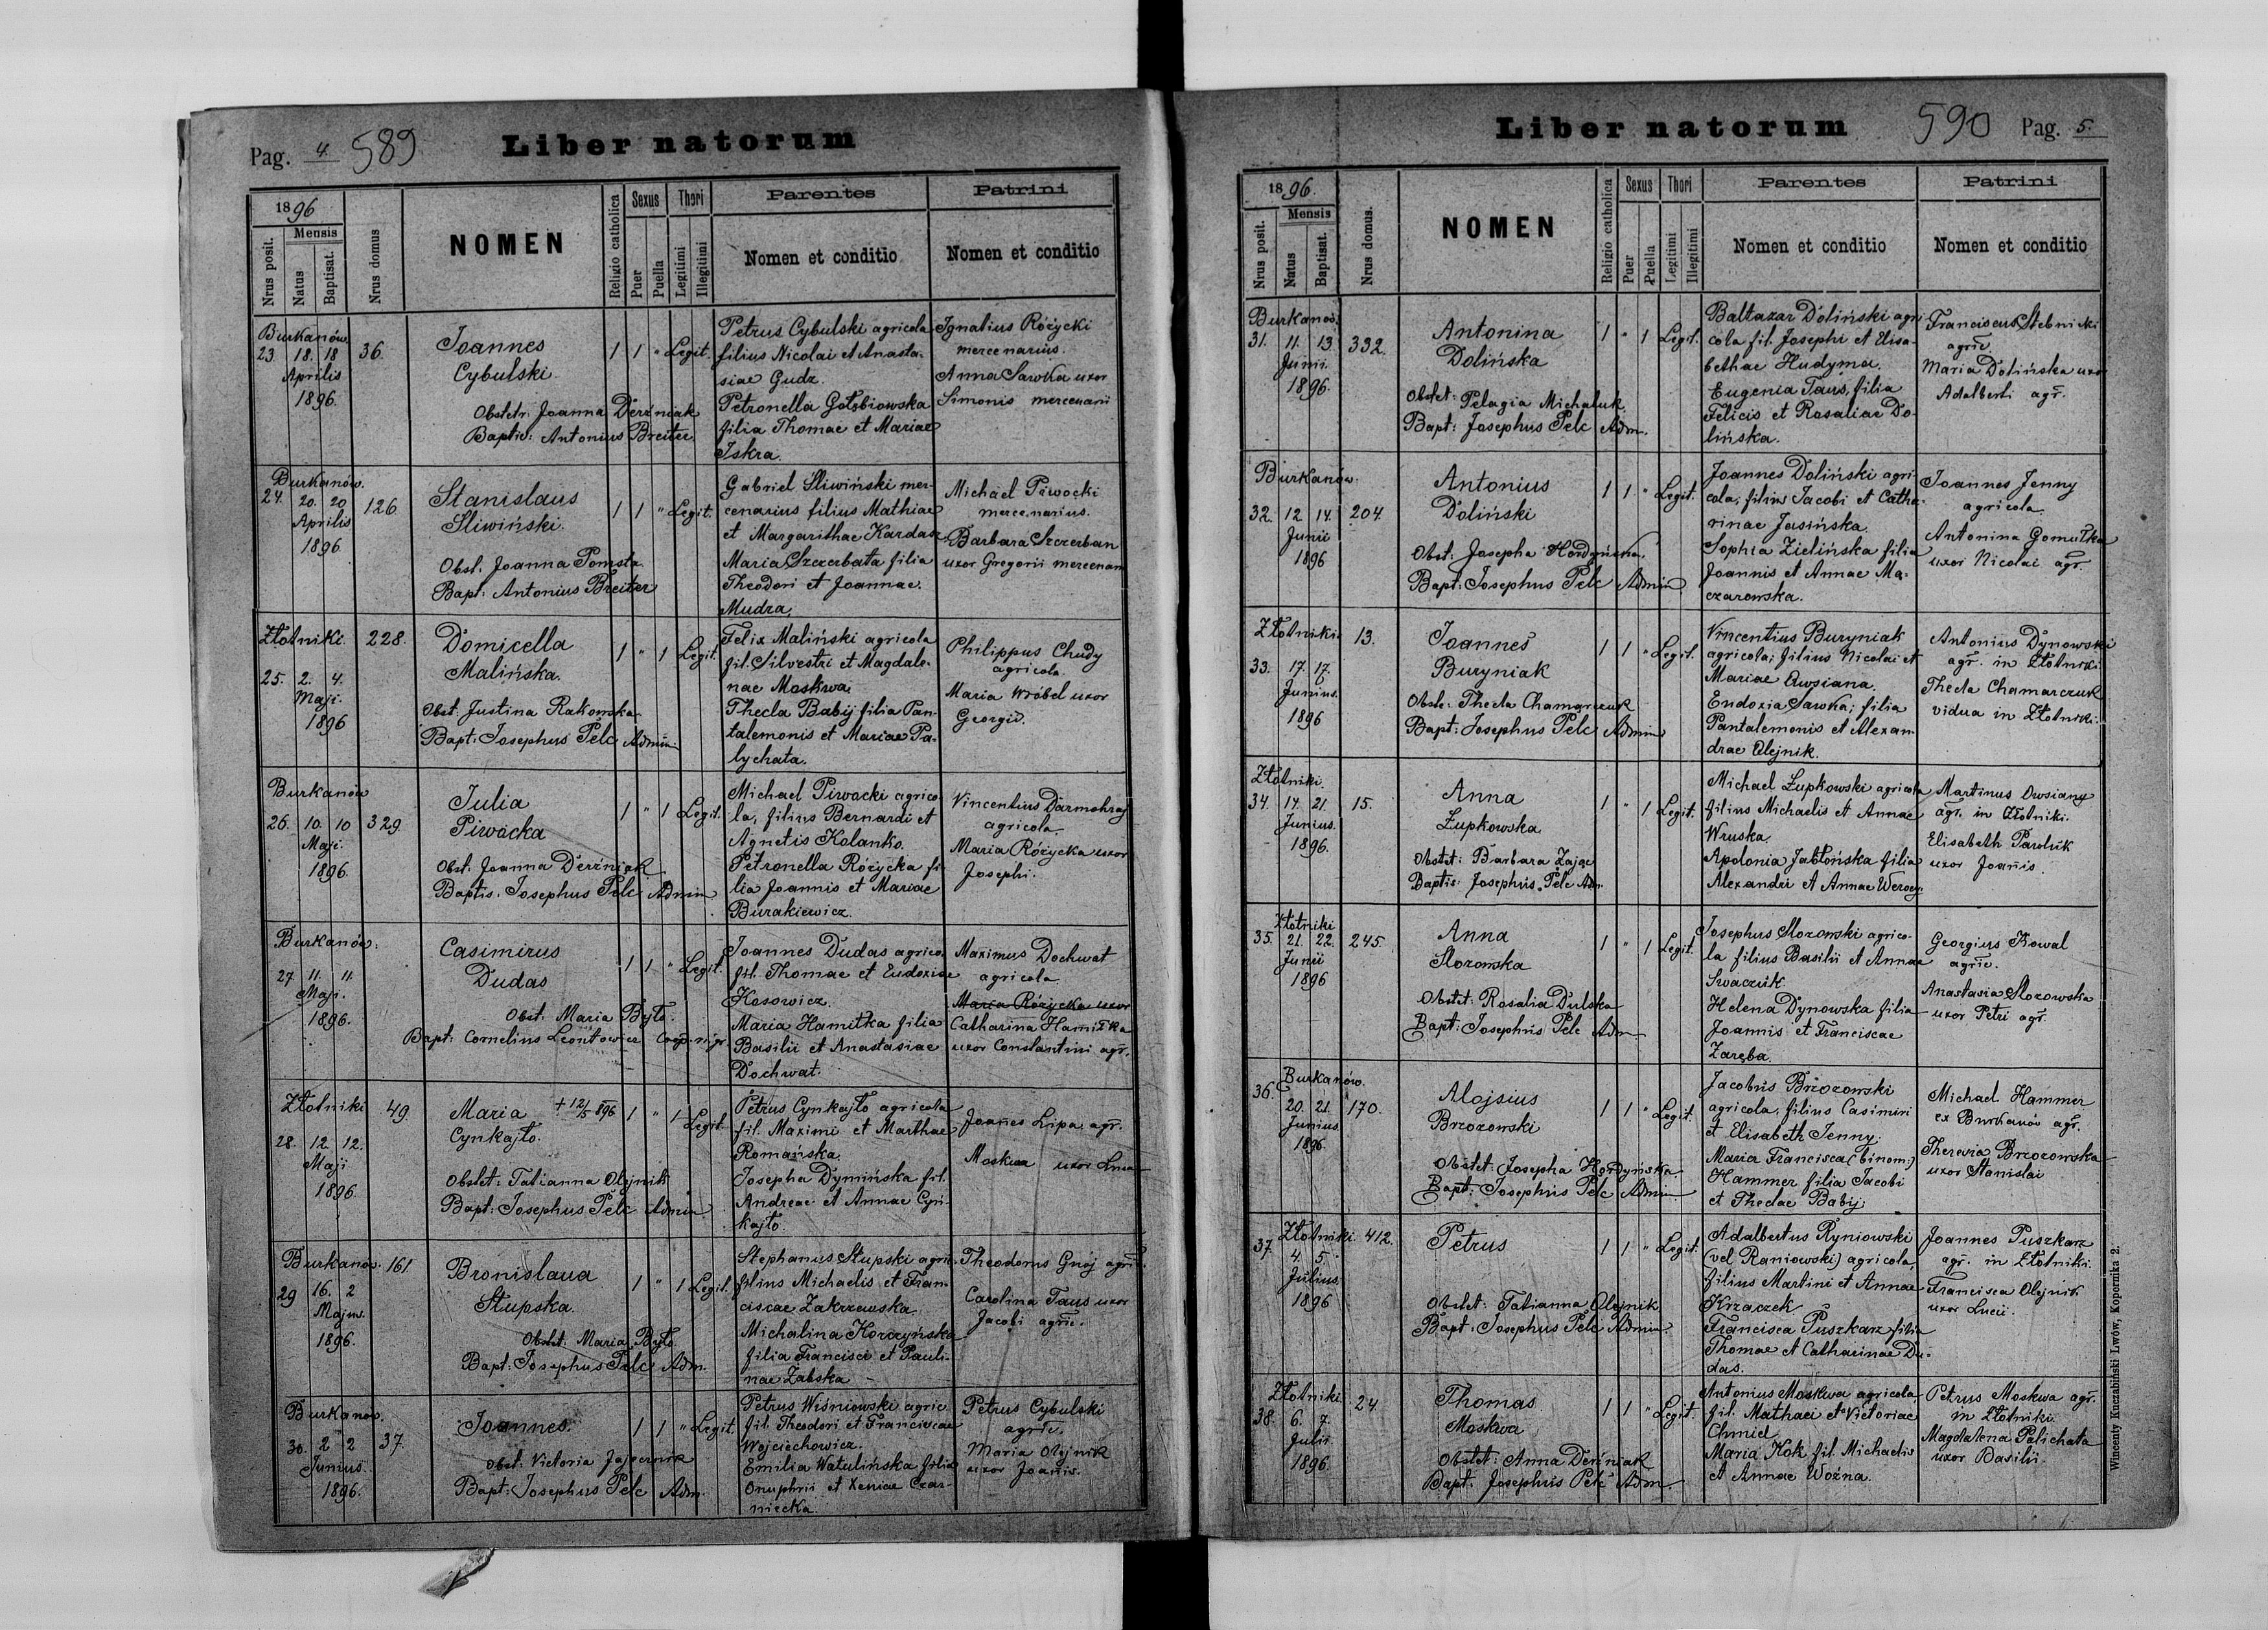 Pag. 4 589 Liber natorum
1896
Nrus posit.
Mensis
Natus
Baptisat.
Nrus domus
NOMEN
Religio catholica
Sexus
Puer
Puella
Thori
Legitimi
Illegitimi
Parentes
Nomen et conditio
Patrini
Nomen et conditio
Burkanów
23. 18. 18 36.
Aprilis
1896.
Joannes
Cybulski
Obstetr. Joanna Derżniak
Baptis: Antonius Breiter
1 1 " Legit.
Petrus Cybulski agricola
filius Nicolai et Anasta-
siae Gudz.
Petronella Gołębiowska
filia Thomae et Mariae
Iskra.
Ignatius Różycki
mercenarius.
Anna Sawka uxor
Simonis mercenarii
Burkanów.
24. 20. 20 126
Aprilis
1896
Stanislaus
Sliwiński.
Obst. Joanna Pomsta
Bapt: Antonius Breiter
1 1 " Legit.
Gabriel Śliwiński mer-
cenarius filius Mathiae
et Margarithae Kardasz
Maria Szczerbata filia
Theodori et Joannae
Mudra.
Michael Piwocki
mercenarius.
Barbara Szczerban
uxor Gregorii mercenarii
Złotniki. 228.
25. 2. 4.
Maji.
1896
Domicella
Malińska.
Obst: Justina Rakowska
Bapt: Josephus Pelc Admin.
1 " 1 Legit.
Felix Maliński agricola
fil. Silvestri et Magdale-
nae Moskwa.
Thecla Babij filia Pan-
talemonis et Mariae Pa-
lychata.
Philippus Chudy
agricola.
Maria Wróbel uxor
Georgii.
Burkanów
26. 10. 10 329.
Maji.
1896.
Julia
Piwacka
Obst. Joanna Derżniak
Baptis. Josephus Pelc Admin
1 " 1 Legit.
Michael Piwacki agrico-
la, filius Bernardi et
Agnetis Kolanko.
Petronella Różycka fi-
lia Joannis et Mariae
Burakiewicz.
Vincentius Darmohraj
agricola
Maria Różycka uxor
Josephi.
Burkanów.
27 11. 11.
Maji.
1896.
Casimirus
Dudas
Obst. Maria Byto.
Bapt: Cornelius Leontowicz Coop. r. gr.
1 1 " Legit.
Joannes Dudas agrico.
fil. Thomae et Eudoxiae
Kosowicz.
Maria Hamitka filia
Basilii et Anastasiae
Dochwat.
Maximus Dochwat
agricola
Maria Różycka uxor
Catharina Hamitka
uxor Constantini agr.
Złotniki 49
28. 12. 12.
Maji
1896
Maria + 12/5 896
Cynkajło.
Obstet: Tatianna Olejnik
Bapt: Josephus Pelc Admin
1 " 1 Legit
Petrus Cynkajło agricola
fil. Maximi et Marthae
Romańska
Josepha Dymińska fil.
Andreae et Annae Cyn-
kajło.
Joanes Lipa agr.
Moskwa uxor
Burkanów. 161
29 16. 2
Majus.
1896.
Bronislaua
Słupska
Obstet. Maria Byto
Bapt: Josephus Pelc Adm.
1 " 1 Legit.
Stephanus Słupski agric.
filius Michaelis et Fran-
ciscae Zakrzewska
Michalina Korczyńska
filia Francisci et Pauli-
nae Zabska
Theodorus Gnój agric.
Carolina Taus uxor
Jacobi agric.
Burkanów.
30. 2 2 37.
Junius.
1896.
Joannes.
Obst. Victoria
Bapt: Josephus Pelc Adm.
1 1 " Legit.
Petrus Wiśniowski agric.
fil. Theodori et Franciscae
Wojciechowicz.
Emilia Watulińska filia
Onuphrii et Xeniae Czar-
niecka.
Petrus Cybulski
agric.
Maria Olejnik
uxor Joanis.
Liber natorum 590 Pag. 5.
1896.
Nrus posit.
Mensis
Natus
Baptisat.
Nrus domus.
NOMEN
Religio catholica
Sexus
Puer
Puella
Thori
Legitimi
Illegitimi
Parentes
Nomen et conditio
Patrini
Nomen et conditio
Burkanów.
31. 11. 13. 332.
Junii
1896.
Antonina
Dolińska
Obstet: Pelagia Michaluk.
Bapt: Josephus Pelc Adm.
1 " 1 Legit.
Baltazar Doliński agri-
cola fil. Josephi et Elisa-
bethae Hudyma.
Eugenia Taus, filia
Felicis et Rosaliae Do-
lińska.
Franciscus Stebnicki
agric
Maria Dolińska uxor
Adalberti agr.
Burkanów.
32. 12. 14. 204.
Junii
1896
Antonius
Doliński
Obst: Josepha Hordyńska.
Bapt: Josephus Pelc Admin
1 1 " Legit.
Joannes Doliński agri-
cola, filius Jacobi et Catha-
rinae Jasińska.
Sophia Zielińska filia
Joannis et Annae Ma-
czarowska.
Joannes Jenny
agricola.
Antonina Gomułka
uxor Nicolai agr.
Złotniki. 13.
33. 17. 17.
Junius.
1896
Joannes
Buryniak
Obste. Thecla Chamarczuk
Bapt: Josephus Pelc Admin
1 1 " Legit.
Vincentius Buryniak
agricola; filius Nicolai et
Mariae Owsiana.
Eudoxia Sawka; filia
Pantalemonis et Alexan-
drae Olejnik.
Antonius Dynowski
agr. in Złotniki
Thecla Chamarczuk
vidua in Złotniki.
Złotniki
34. 14. 21. 15.
Junius.
1896.
Anna
Łupkowska
Obstet: Barbara Zając
Baptis: Josephus Pelc Adm.
1 " 1 Legit.
Michael Łupkowski agricola
filius Michaelis et Annae
Wruska
Apolonia Jabłońska filia
Alexandri et Annae
Martinus Owsiany
agr. in Złotniki.
Elisabeth Paroluk
uxor Joanis.
Złotniki
35. 21. 22. 245.
Junii
1896
Anna
Slozowska
Obstet: Rosalia Dulska
Bapt: Josephus Pelc Adm
1 " 1 Legit.
Josephus Slozowski agrico-
la filius Basilii et Annae
Iwaczuk.
Helena Dynowska filia
Joannis et Franciscae
Zaręba.
Georgius Kowal
agric.
Anastasia Slozowska
uxor Petri agr.
Burkanów.
36. 20. 21. 170.
Junius
1896.
Alojsius
Brzozowski
Obstet: Josepha Hordyńska
Bapt: Josephus Pelc Admin
1 1 " Legit.
Jacobus Brzozowski
agricola, filius Casimiri
et Elisabeth Jenny.
Maria Francisca (binom:)
Hammer filia Jacobi
et Theclae Babij
Michael Hammer
ex Burkanów agr.
Theresia Brzozowska
uxor Stanislai
Złotniki 412.
37. 4. 5.
Julius
1896
Petrus
Obstet: Tatianna Olejnik
Bapt: Josephus Pelc Admin.
1 1 " Legit.
Adalbertus Ryniowski
(vel Raniowski) agricola,
filius Martini et Annae
Krzaczek
Francisca Puszkarz filia
Thomae et Catharinae Du-
das.
Joannes Puszkarz
agr. in Złotniki.
Francisca Olejnik
uxor Lucii.
Złotniki
38. 6. 7. 24
Julii
1896
Thomas
Moskwa
Obstet: Anna Derżniak
Bapt. Josephus Pelc Adm.
1 1 " Legit.
Antonius Moskwa agricola
fil. Mathaei et Victoriae
Chmiel
Maria Kok fil. Michaelis
et Annae Woźna.
Petrus Moskwa agr.
in Złotniki.
Magdalena Palichata
uxor Basilii.
Wincenty Kuczabiński Lwów, Kopernika 2.